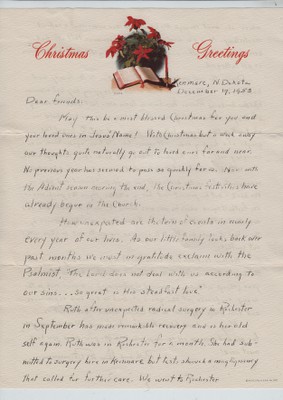 Christmas Greetings
Kenmare, N. Dakota
December 17, 1952
Dear friends:
May this be a most blessed Christmas for you and
your loved ones in Jesus' Name! With Christmas but a week away
our thoughts quite naturally go out to loved ones far and near.
No previous year has seemed to pass so quickly for us. Now with
the Advent season nearing the end, the Christmas festivities have
already begun in the Church.
How unexpected are the turns of events in nearly
every year of our lives. As our little family looks back over
past months we must in gratitude exclaim with the
Psalmist, "The Lord does not deal with us according to
our sins... so great is His steadfast love."
Ruth after unexpected radical surgery in Rochester
in September has made remarkable recovery and is her old
self again. Ruth was in Rochester for a month. She had sub-
mitted to surgery here in Kenmare but tests showed a malignancy
that called for further care. We went to Rochester